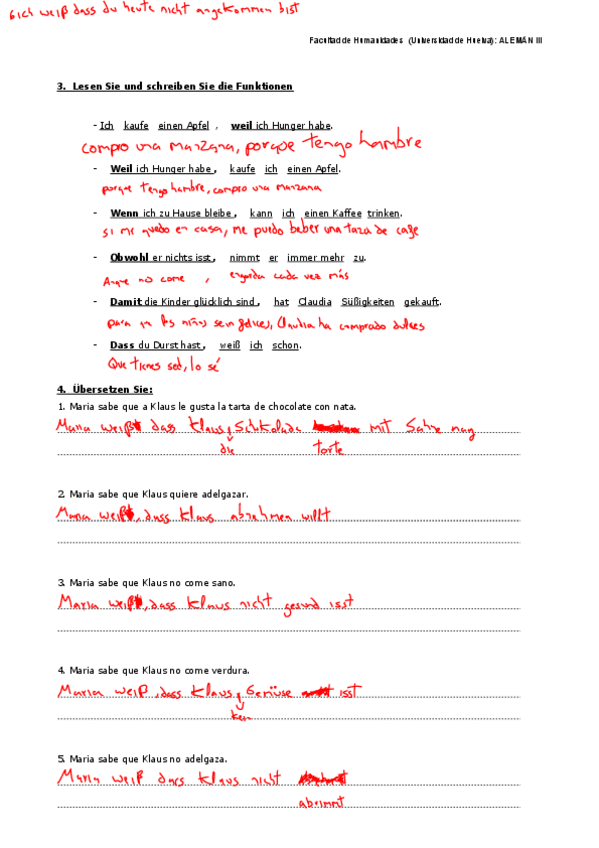 6ich weiß dass du heute nicht angekommen bist
Facultad de Humanidades (Universidad de Huelva): ALEMÁN III
3. Lesen Sie und schreiben Sie die Funktionen
- Ich kaufe einen Apfel , weil ich Hunger habe.
compro una manzana, porque tengo hambre
- Weil ich Hunger habe , kaufe ich einen Apfel.
porque tengo hambre, compro una manzana
- Wenn ich zu Hause bleibe , kann ich einen Kaffee trinken.
si me quedo en casa, me puedo beber una taza de cafe
- Obwohl er nichts isst , nimmt er immer mehr zu.
Aunque no come , engorda cada vez más
- Damit die Kinder glücklich sind , hat Claudia Süßigkeiten gekauft.
para que los niños sean felices, Claudia ha comprado dulces
- Dass du Durst hast , weiß ich schon.
Que tienes sed, lo sé
4. Übersetzen Sie:
1. Maria sabe que a Klaus le gusta la tarta de chocolate con nata.
Maria weiß dass Klaus Schokolade mit Sahne mag
die torte
2. Maria sabe que Klaus quiere adelgazar.
Maria weiß, dass Klaus abnehmen willt
3. Maria sabe que Klaus no come sano.
Maria weiß, dass Klaus nicht gesund isst
4. Maria sabe que Klaus no come verdura.
Maria weiß, dass Klaus Gemüse isst
ken
5. Maria sabe que Klaus no adelgaza.
Maria weiß dass Klaus nicht
abnimmt